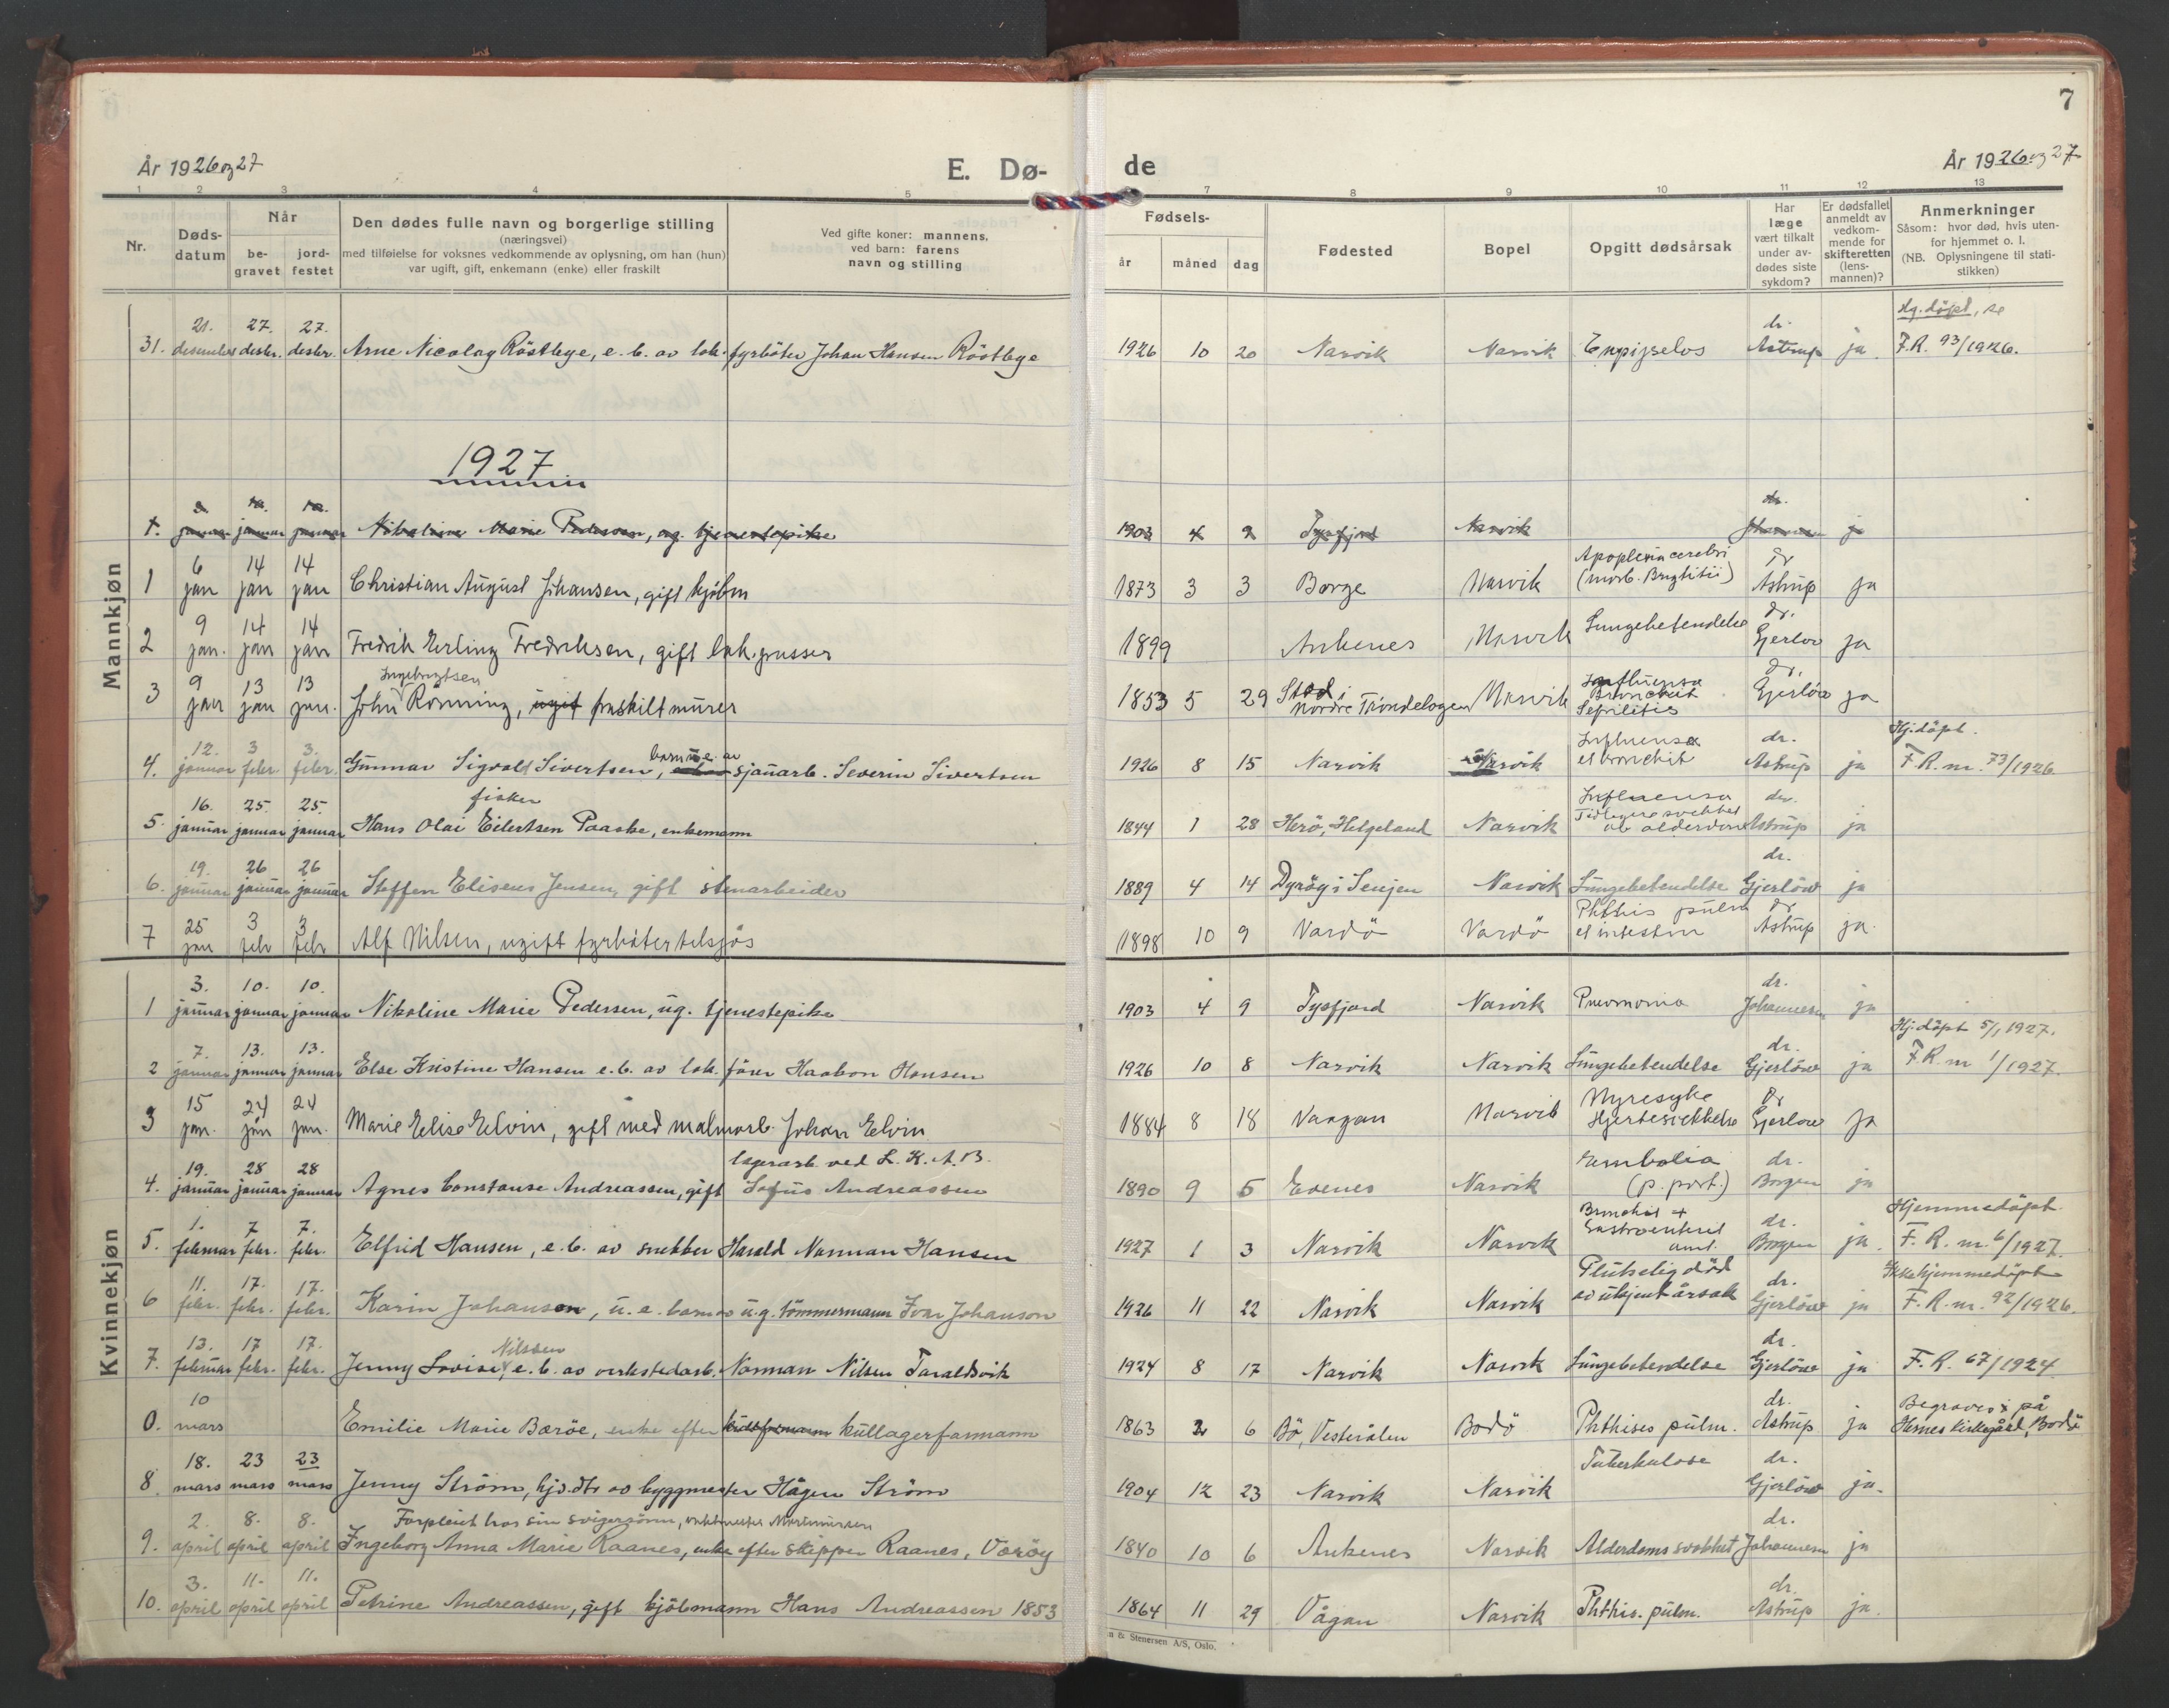 7
År 1926 og 27 E. Dø- de År 1926 og 27
1 2 3 4 5 7 8 9 10 11 12 13
Nr. Døds-datum Når be-gravet jord-festet Den dødes fulle navn og borgerlige stilling (næringsvei) med tilføielse for voksnes vedkommende av oplysning, om han (hun) var ugift, gift, enkemann (enke) eller fraskilt Ved gifte koner: mannens, ved barn: farens navn og stilling Fødsels- år måned dag Fødested Bopel Opgitt dødsårsak Har læge vært tilkalt under av-dødes siste sykdom? Er dødsfallet anmeldt av vedkom-mende for skifteretten (lens-mannen)? Anmerkninger Såsom: hvor død, hvis uten-for hjemmet o. l. (NB. Oplysningene til stati-stikken)
31. 21. desember 27. desbr. 27. desbr. Arne Nicolay Röstbye, e. b. av lok. fyrböter Johan Hansen Röstbye 1926 10 20 Narvik Narvik dr. Astrup ja. Hj. döpt, se F.R. 93/1926.
1927
Mannkjøn
1. 3. januar 10. januar 10. januar Nikoline Marie Pedersen, ug. tjenestepike 1903 4 9 Tysfjord Narvik dr. Johannesen ja
1 6 jan 14 jan 14 jan Christian August Johansen, gift kjöbm 1873 3 3 Borge Narvik Apoplexia cerebri (morb. Brigtitii) Dr Astrup ja
2 9 jan. 14 jan 14 jan Fredrik Erling Fredriksen, gift lok.pusser 1899 Ankenes Narvik Lungebetendelse Dr. Gjerlov ja
3 9 jan 13 jan 13 jan. John Ingebrigtsen Rönning, ugift fraskilt murer 1853 5 29 Stod i Nordre Tröndelagen Narvik Influensa Bronchit Dr. Gjerlöv ja
4. 12. januar 3 febr. 3. febr. Gunnar Sigvald Sivertsen, barn u.e. av sjauarb. Severin Sivertsen 1926 8 15 Narvik Narvik Influensa et bronchit dr. Astrup ja Hj. döpt. F.R. nr. 73/1926
5. 16. januar 25. januar 25. januar Hans Olai Eilertsen Paaske, fisker enkemann 1844 1 28 Herö, Helgeland Narvik Influensa Tidligere svekket av alderdom dr. Astrup ja
6. 19. januar 26 januar 26 januar Steffen Eliseus Jensen, gift stenarbeider 1889 4 14 Dyröy i Senjen Narvik Lungebetendelse dr. Gjerlöw ja
7 25 jan 3 febr 3 febr Alf Nilsen, ugift fyrböter tilsjös 1898 10 9 Vardö Vardö Phthis pulm et intestin Dr Astrup ja.
Kvinnekjøn
1 3. januar 10. januar 10. januar Nikoline Marie Pedersen, ug. tjenestepike 1903 4 9 Tysfjord Narvik Pneumonia dr. Johannesen ja
2 7. januar 13. januar 13. januar Else Kristine Hansen e.b. av lok. förer Haakon Hansen 1926 10 8 Narvik Narvik Lungebetendelse dr. Gjerlöw ja Hj. döpt 5/1 1927. F.R. nr 1/1927.
3 15 jan. 24 jan 24 jan. Marie Elise Elvin, gift med malmarb. Johan Elvin 1884 8 18 Vaagan Narvik Nyresyke Hjertesvekkelse Dr Gjerlow ja
4. 19. januar 28 januar 28 januar Agnes Constanse Andreassen, gift lagerarb. ved L. K. A. B. Sofus Andreassen 1890 9 5 Evenes Narvik Embolia (p. part.) dr. Borgen ja
5. 1. februar 7 febr. 7. febr. Elfrid Hansen, e.b. av snekker Harald Norman Hansen 1927 1 3 Narvik Narvik Bronchit + Gastroenterit acut. dr. Borgen ja. Hjemmedöpt. F. R. nr. 6/1927.
6 11. febr. 17. febr. 17. febr. Karin Johanson, u. e. barn av ug. tömmermann Ivar Johanson 1926 11 22 Narvik Narvik Plutselig död av ukjent årsak dr. Gjerlöw ja Ikke hjemmedöpt F. R. nr. 92/1926.
7. 13. februar 17 febr. 17. febr. Jenny Lovise Nilssen, e.b. av verkstedarb. Norman Nilsen Taraldsvik 1924 8 17 Narvik Narvik Lungebetendelse dr. Gjerlöw ja F. R. 67/1924.
0. 10 mars Emilie Marie Bæröe, enke efter kullagerformann 1863 2 6 Bö, Vesterålen Bodö Phthises pulm. dr. Astrup ja Begraves på Hernes kirkegård, Bodö
8. 18. mars 23 mars 23 mars Jenny Ström, hjv. dtr av byggmester Hågen Ström 1904 12 23 Narvik Narvik Tuberkulose dr. Gjerlöw ja.
9. 2. april 8. april 8. april Forpleiet hos sin svigersönn, Ingeborg Anna Marie Raanes, enke efter skipper Raanes, Væröy 1840 10 6 Ankenes Narvik Alderdomssvakhet dr. Johannesen ja
10. 3. april 11. april 11. april Petrine Andreassen, gift kjöbmann Hans Andreassen 1853 1864 11 29 Vågan Narvik Phthis. pulm. dr. Astrup ja.
& Stenersen A/S, Oslo.